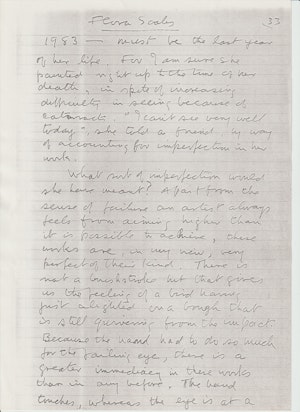 Flora Scales 33
1983 — must be the last year
of her life. For I am sure she
painted right up to the time of her
death, in spite of increasing
difficulty in seeing because of
cataracts. "I can't see very well
today", she told a friend by way
of accounting for imperfection in her
work.
What sort of imperfection would
she have meant? Apart from the
sense of failure an artist always
feels from aiming higher than
it is possible to achieve, these
works are, in my view, very
perfect of their kind. There is
not a brushstroke but that gives
us the feeling of a bird having
just alighted on a bough that
is still quivering from the impact.
Because the hand had to do so much
for the failing eye, there is a
greater immediacy in these works
than in any before. The hand
touches, whereas the eye is at a